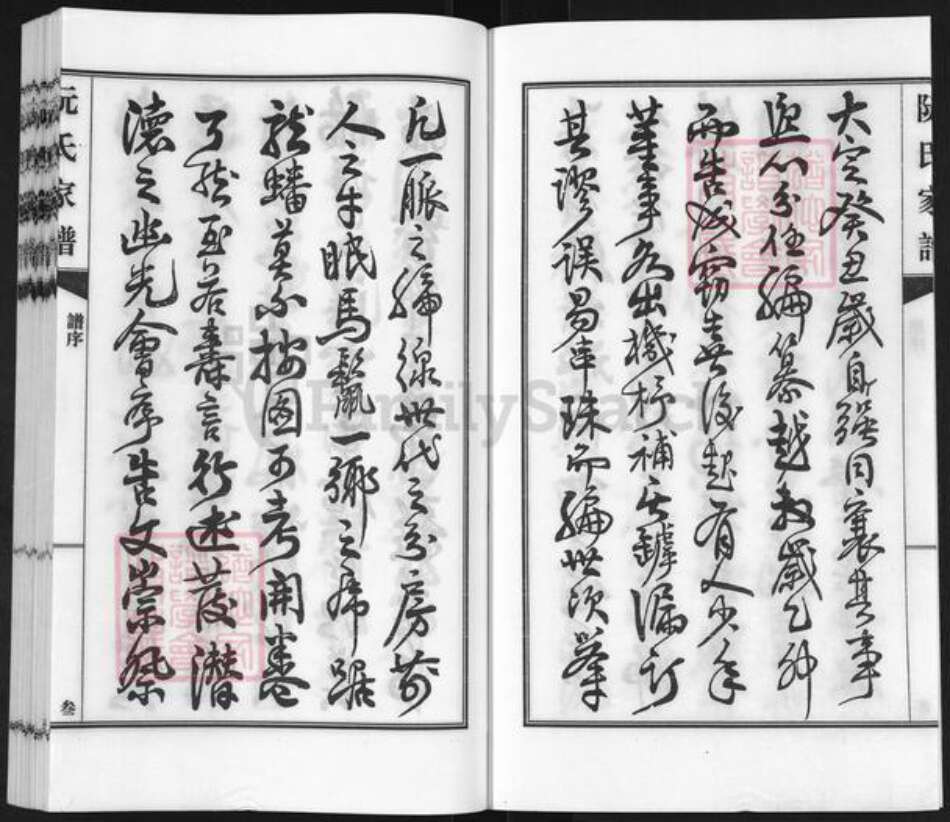 大宗癸丑歲自強同襄其事
分任編纂越數歲乙卯
而告成竊喜後起有人少年
董事久出機杼補其罅漏訂
其謬誤易連珠而編世次舉
阮氏家譜
凡一脈之編線世代之分房前
人之牛眠馬鬣一鄉之席踞
龍蟠莫不按圖可考開卷
了然至若壽言行述發潛
德之幽光會序告文崇祭
阮氏家譜
譜序
叁
FamilySearch